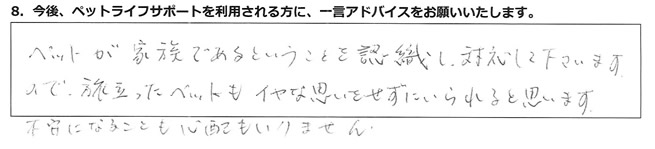 8．今後、ペットライフサポートを利用される方に、一言アドバイスをお願いいたします。
ペットが家族であるということを認織し、対応して下さいます
ので、旅立ったペットもイヤな思いをせずにいられると思います。
不安になることも心配もいりません。